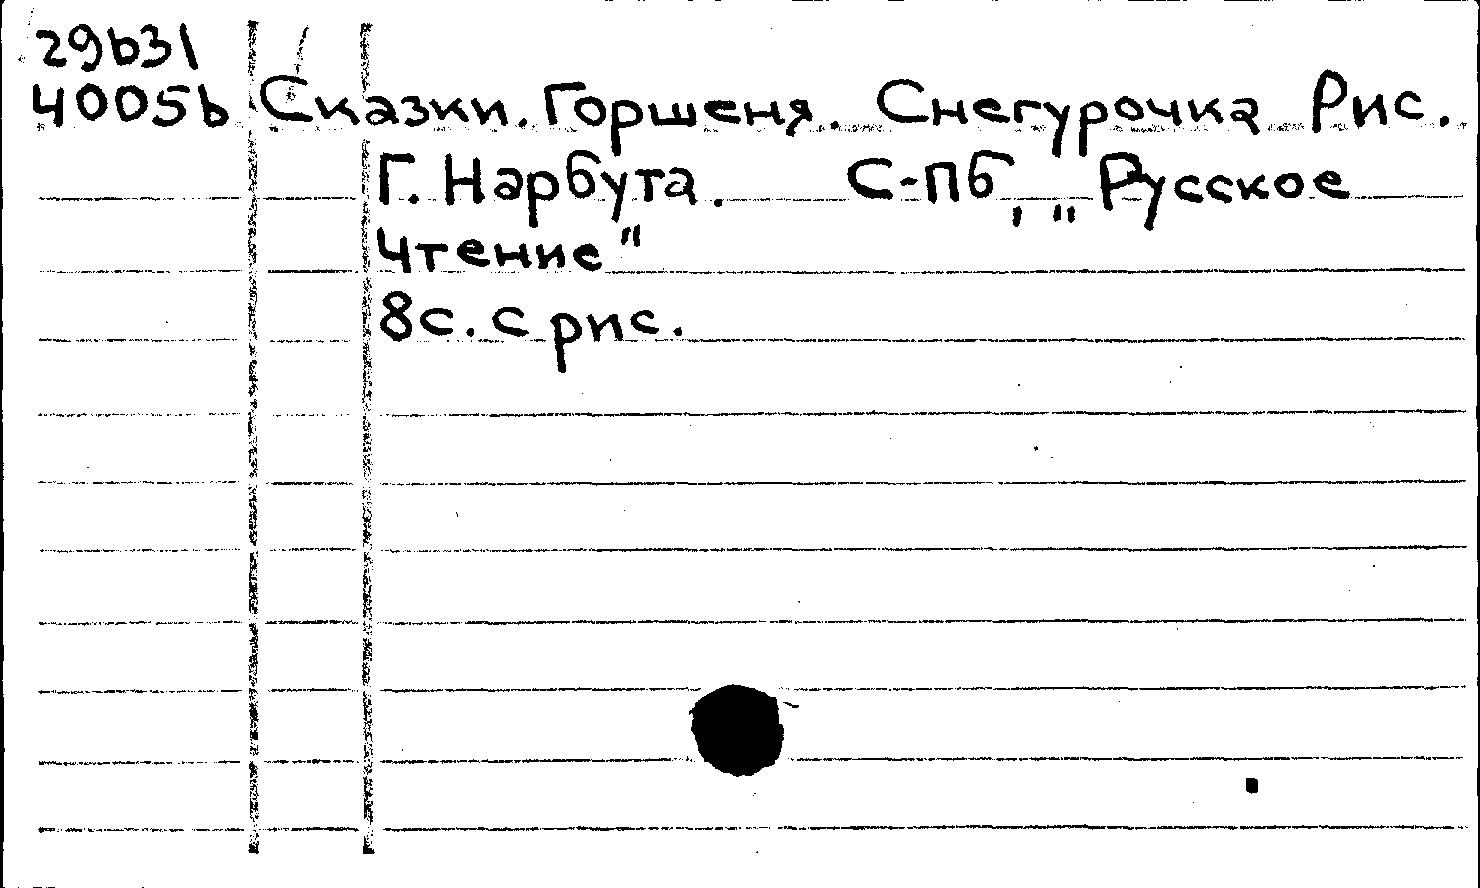 29b31
4005b Сказки. Горшеня. Снегурочка Рис.
Г. Нарбута. С-Пб, „Русское
чтение"
8с. с рис.